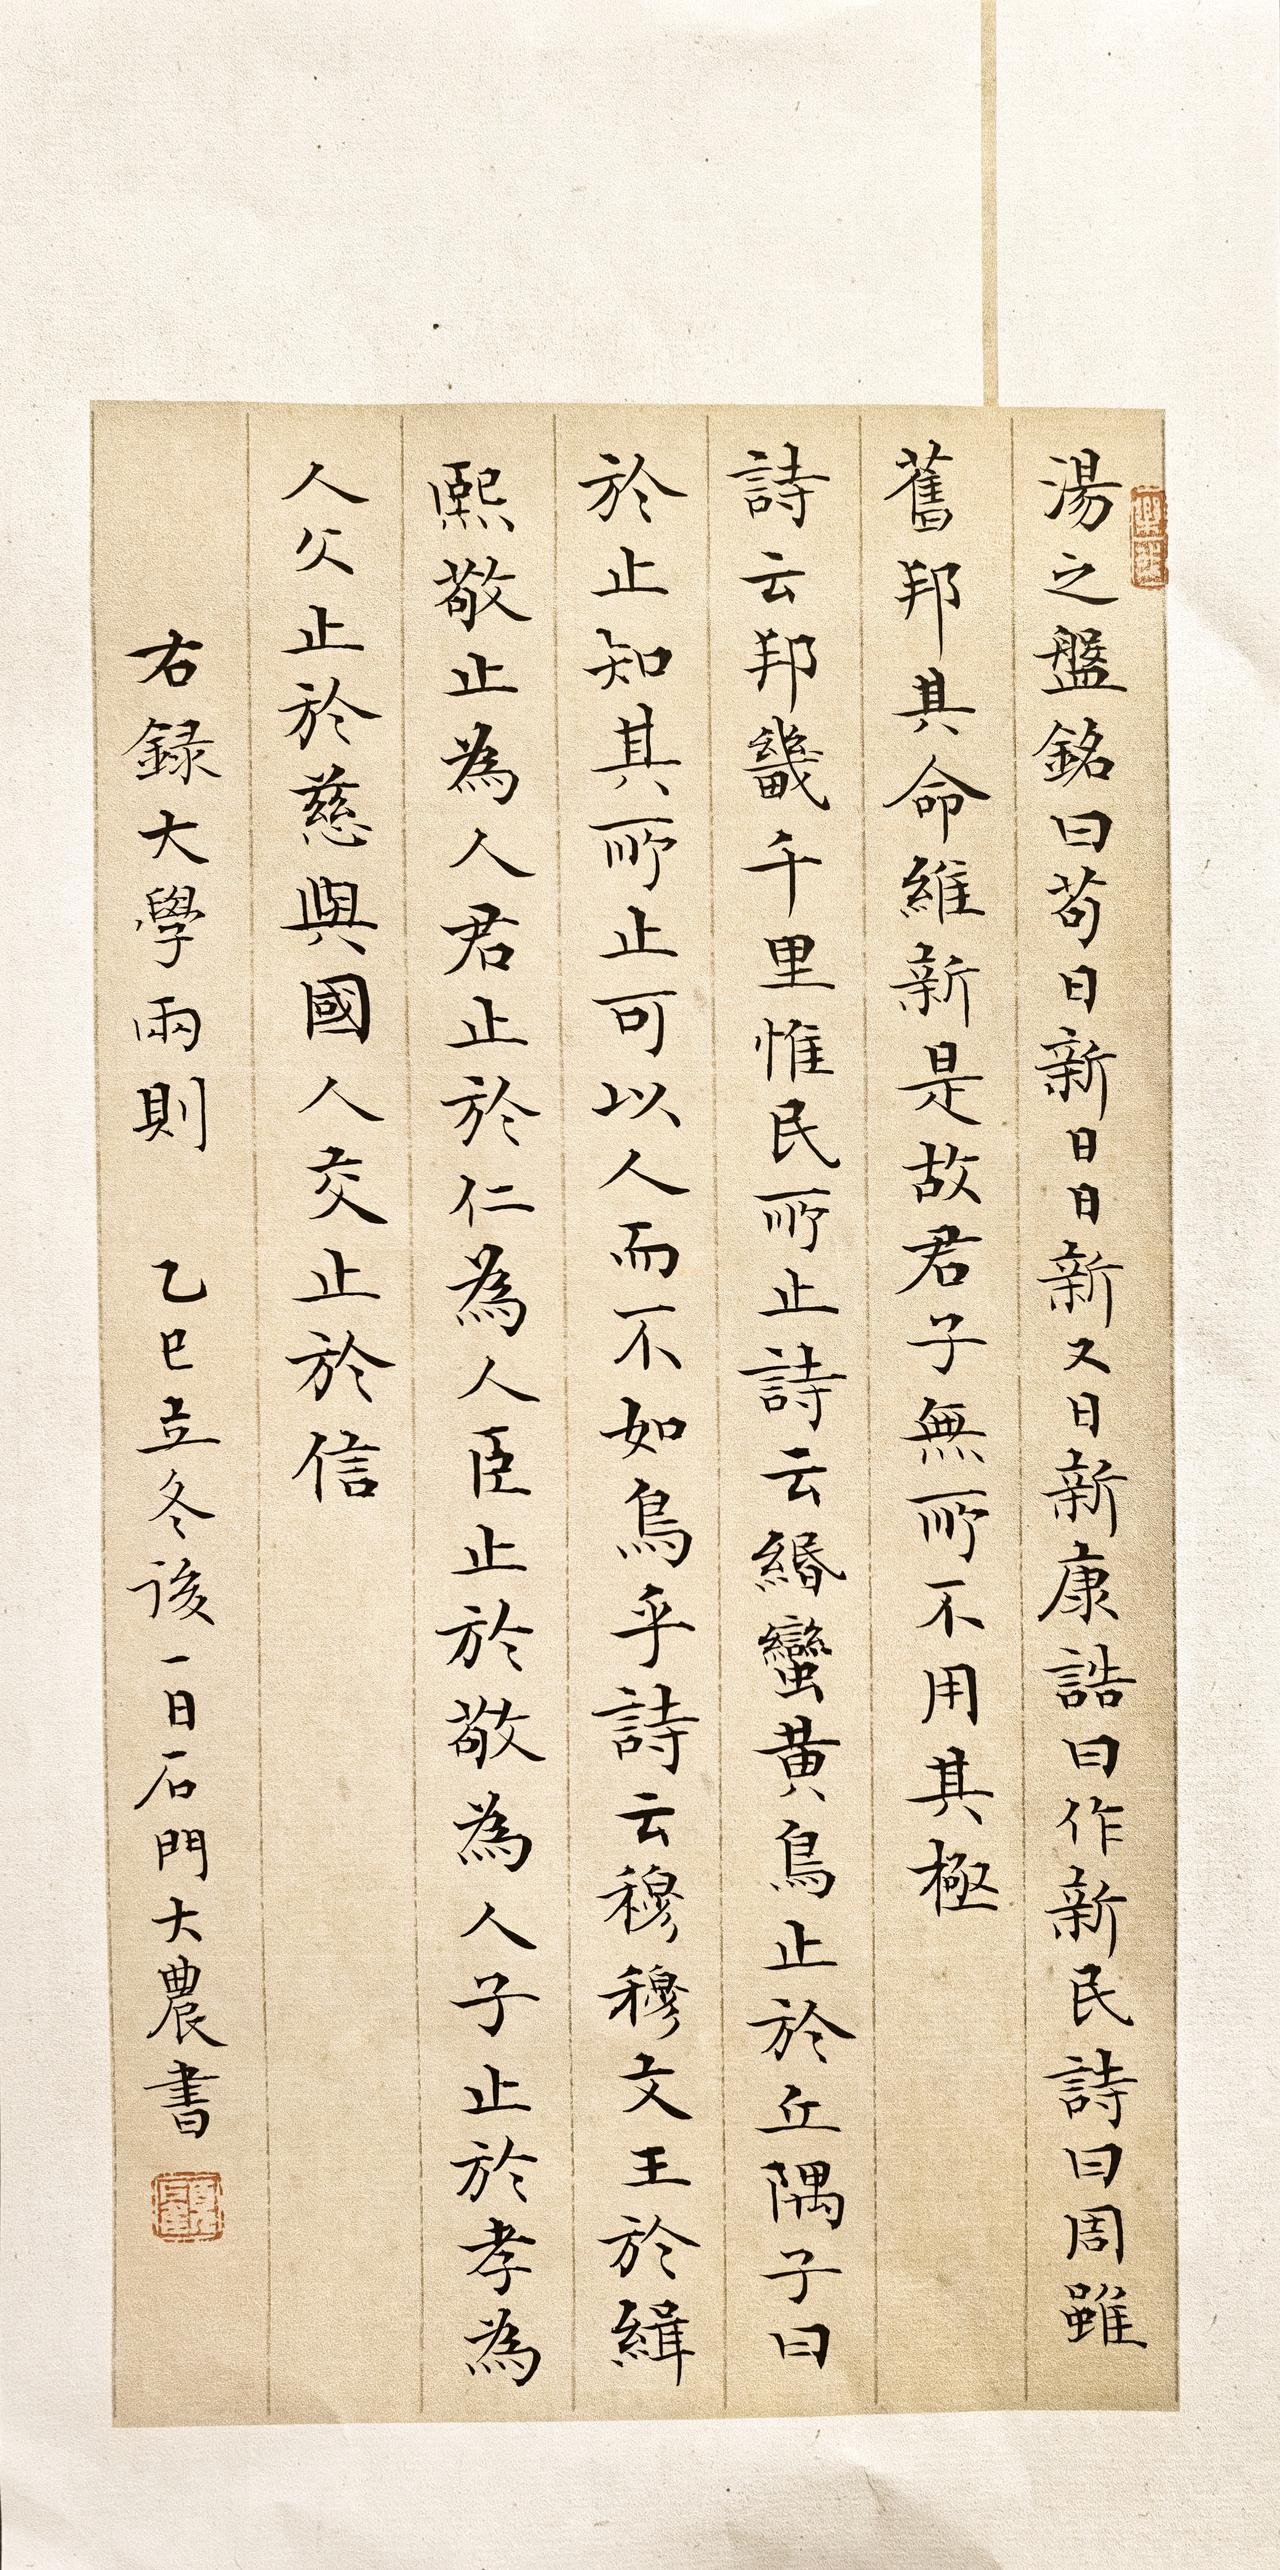 湯之盤銘曰苟日新日日新又日新康誥曰作新民詩曰周雖
舊邦其命維新是故君子無所不用其極
詩云邦畿千里惟民所止詩云緡蠻黃鳥止於丘隅子曰
於止知其所止可以人而不如鳥乎詩云穆穆文王於緝
熙敬止為人君止於仁為人臣止於敬為人子止於孝為
人父止於慈與國人交止於信
右録大學兩則 乙巳立冬後一日石門大農書